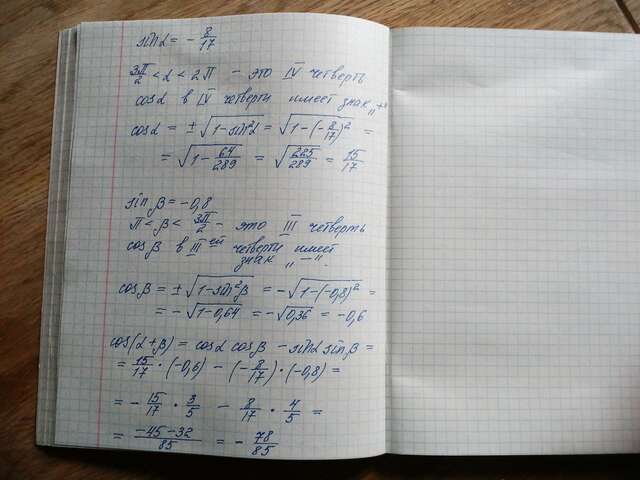 sin α = - 8/17
3π/2 < α < 2π - это IV четверть
cos α в IV четверти имеет знак „+"
cos α = ± √(1 - sin²α) = √(1 - (-8/17)²) =
= √(1 - 64/289) = √(225/289) = 15/17
sin β = -0,8
π < β < 3π/2 - это III четверть
cos β в III ей четверти имеет
знак „-".
cos β = ± √(1 - sin²β) = - √(1 - (-0,8)²) =
= - √(1 - 0,64) = - √0,36 = -0,6
cos(α + β) = cos α cos β - sin α sin β =
= 15/17 · (-0,6) - (-8/17) · (-0,8) =
= - 15/17 · 3/5 - 8/17 · 4/5 =
= (-45 - 32)/85 = - 78/85